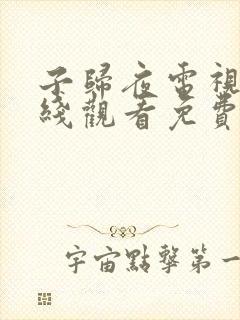 子歸夜電視
綫觀看免費
宇宙點擊第一